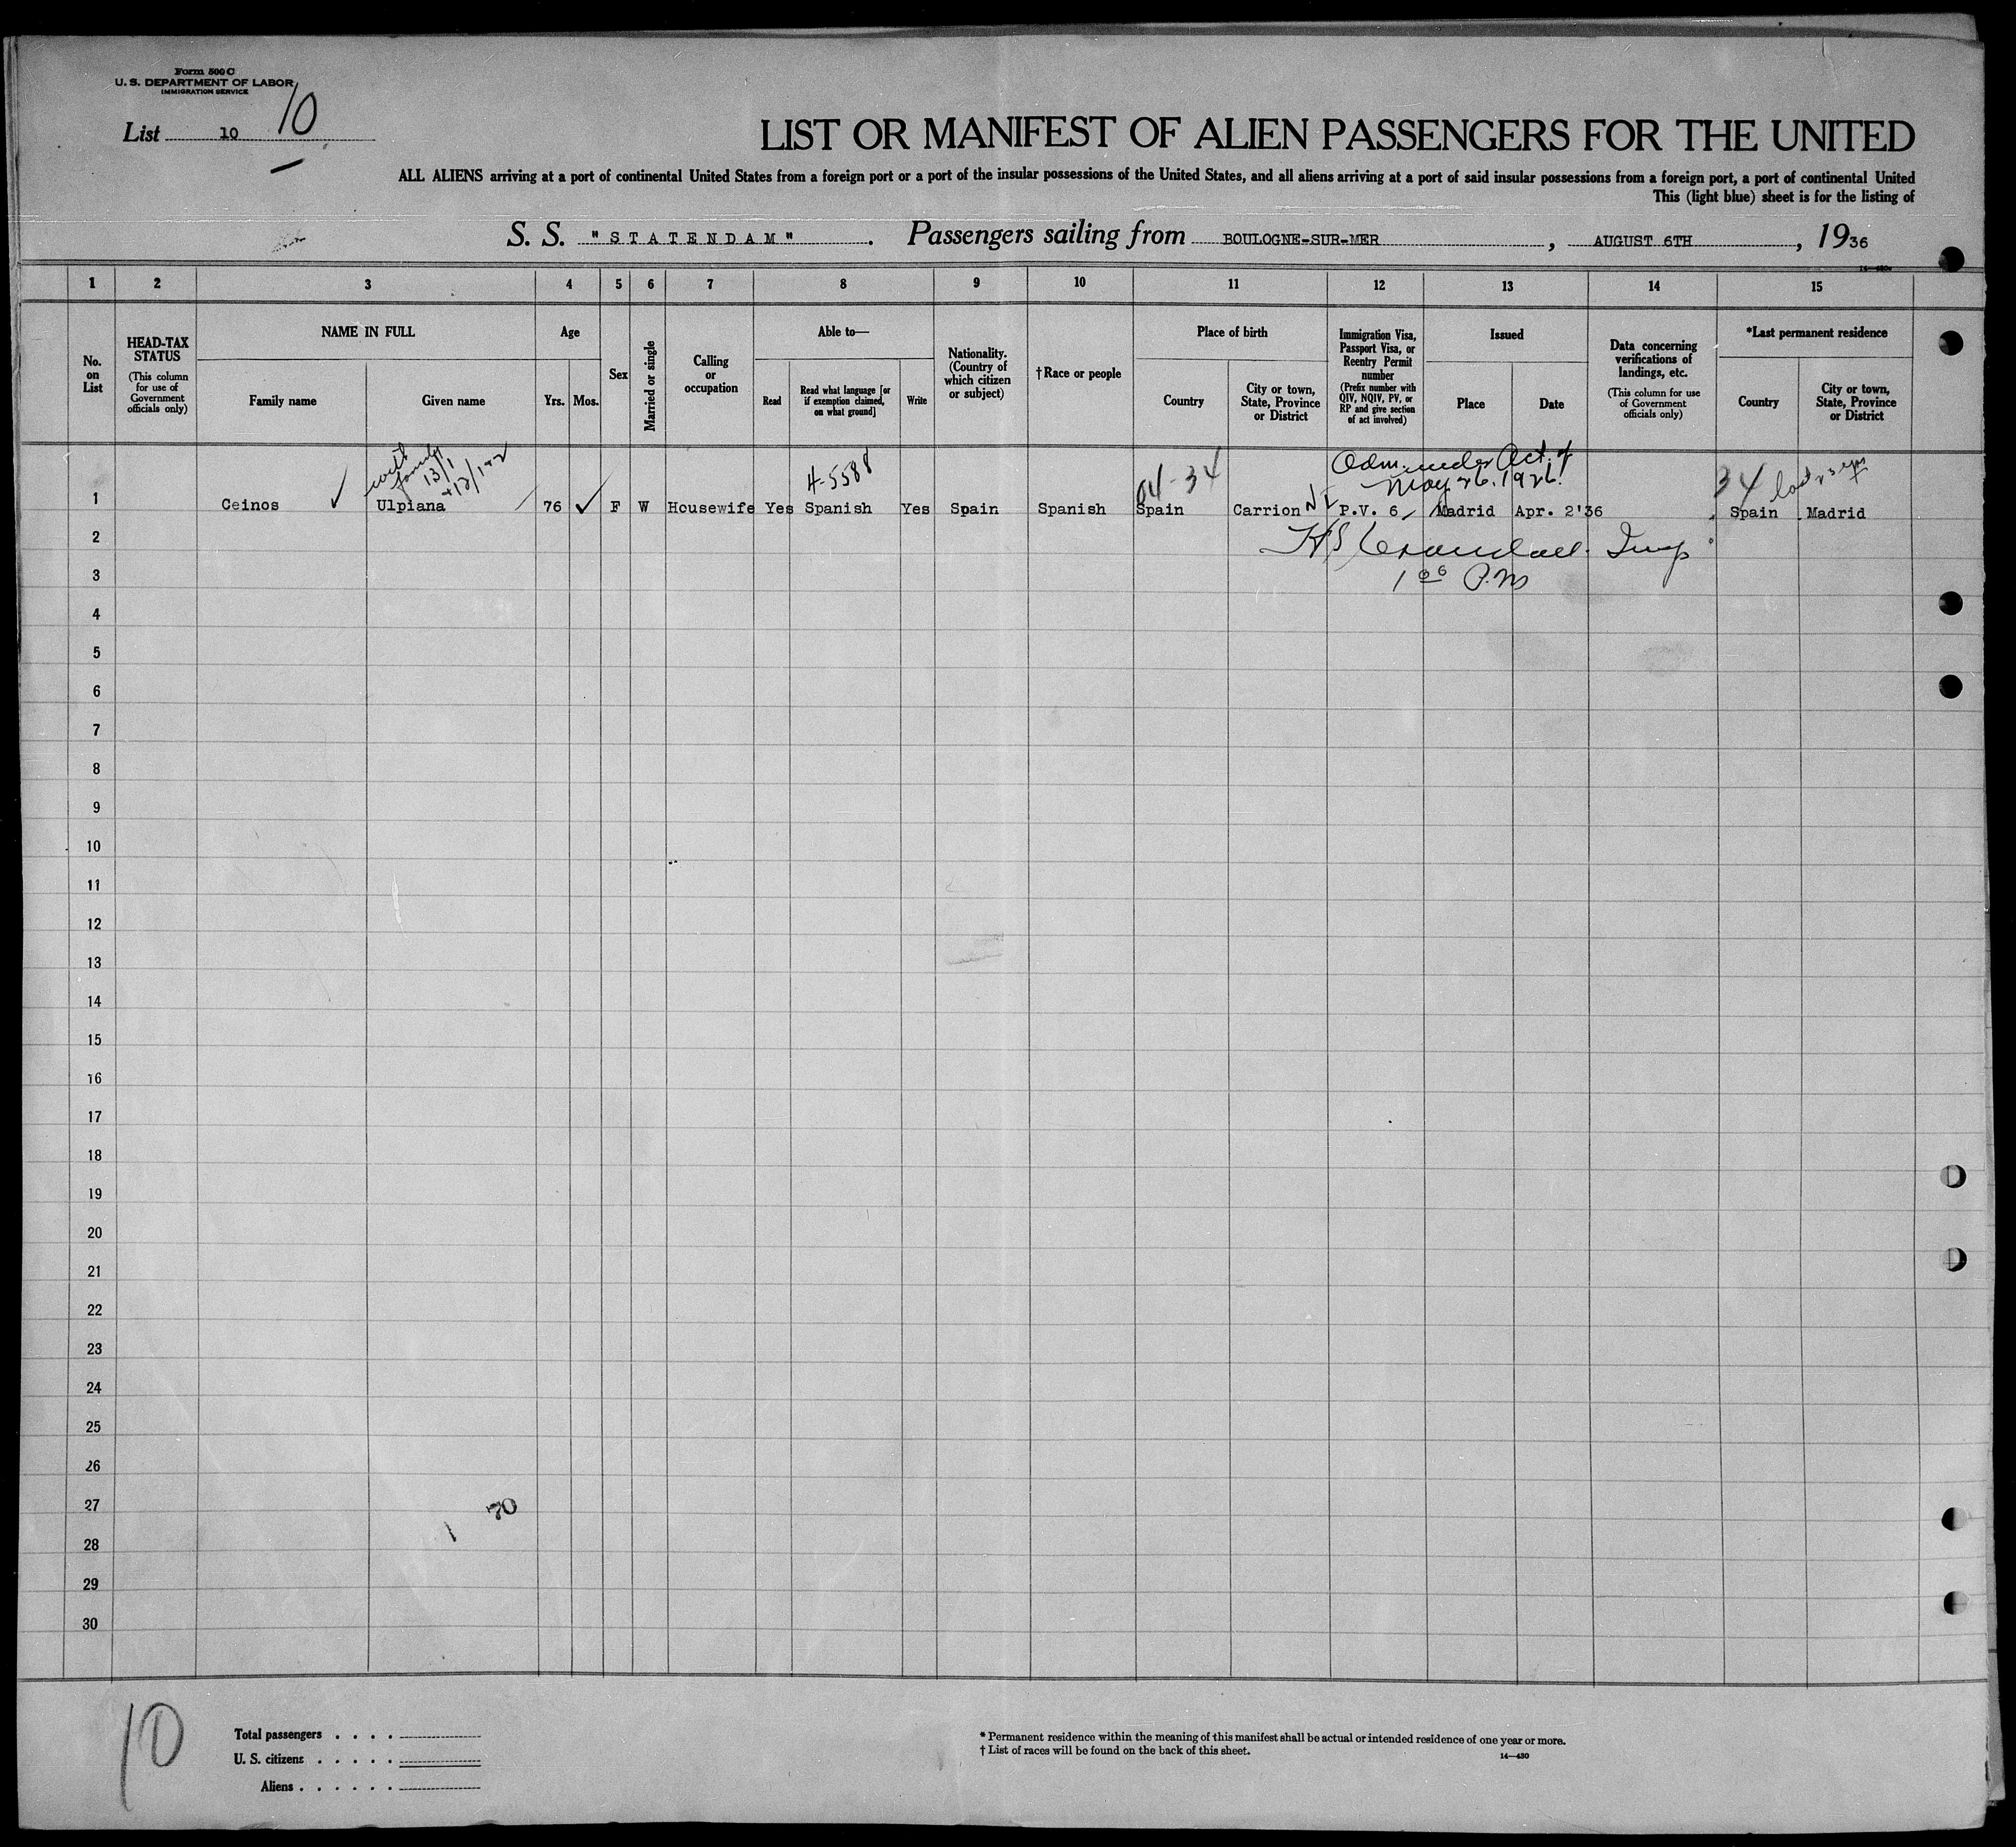 Form 500 C
U. S. DEPARTMENT OF LABOR
IMMIGRATION SERVICE
List 10 10
LIST OR MANIFEST OF ALIEN PASSENGERS FOR THE UNITED
ALL ALIENS arriving at a port of continental United States from a foreign port or a port of the insular possessions of the United States, and all aliens arriving at a port of said insular possessions from a foreign port, a port of continental United
This (light blue) sheet is for the listing of
S. S. "STATENDAM". Passengers sailing from BOULOGNE-SUR-MER, AUGUST 6TH, 1936
1 2 3 4 5 6 7 8 9 10 11 12 13 14 15
No. on List
HEAD-TAX STATUS
(This column for use of Government officials only)
NAME IN FULL
Family name
Given name
Age
Yrs.
Mos.
Sex
Married or single
Calling or occupation
Able to—
Read
Read what language [or if exemption claimed, on what ground]
Write
Nationality. (Country of which citizen or subject)
†Race or people
Place of birth
Country
City or town, State, Province or District
Immigration Visa, Passport Visa, or Reentry Permit number
(Prefix number with QIV, NQIV, PV, or RP and give section of act involved)
Issued
Place
Date
Data concerning verifications of landings, etc.
(This column for use of Government officials only)
*Last permanent residence
Country
City or town, State, Province or District
with family 13/1
H-5588
04-34
Adm. under Act of
May 26. 1926.
34
1 Ceinos Ulpiana 76 F W Housewife Yes Spanish Yes Spain Spanish Spain Carrion P.V. 6 Madrid Apr. 2'36 Spain Madrid
2
Crandall Insp
3
1 00 P.M
4
5
6
7
8
9
10
11
12
13
14
15
16
17
18
19
20
21
22
23
24
25
26
27
70
1
28
29
30
10
Total passengers . . . .
U. S. citizens . . . . .
Aliens . . . . . .
* Permanent residence within the meaning of this manifest shall be actual or intended residence of one year or more.
† List of races will be found on the back of this sheet.
14—430